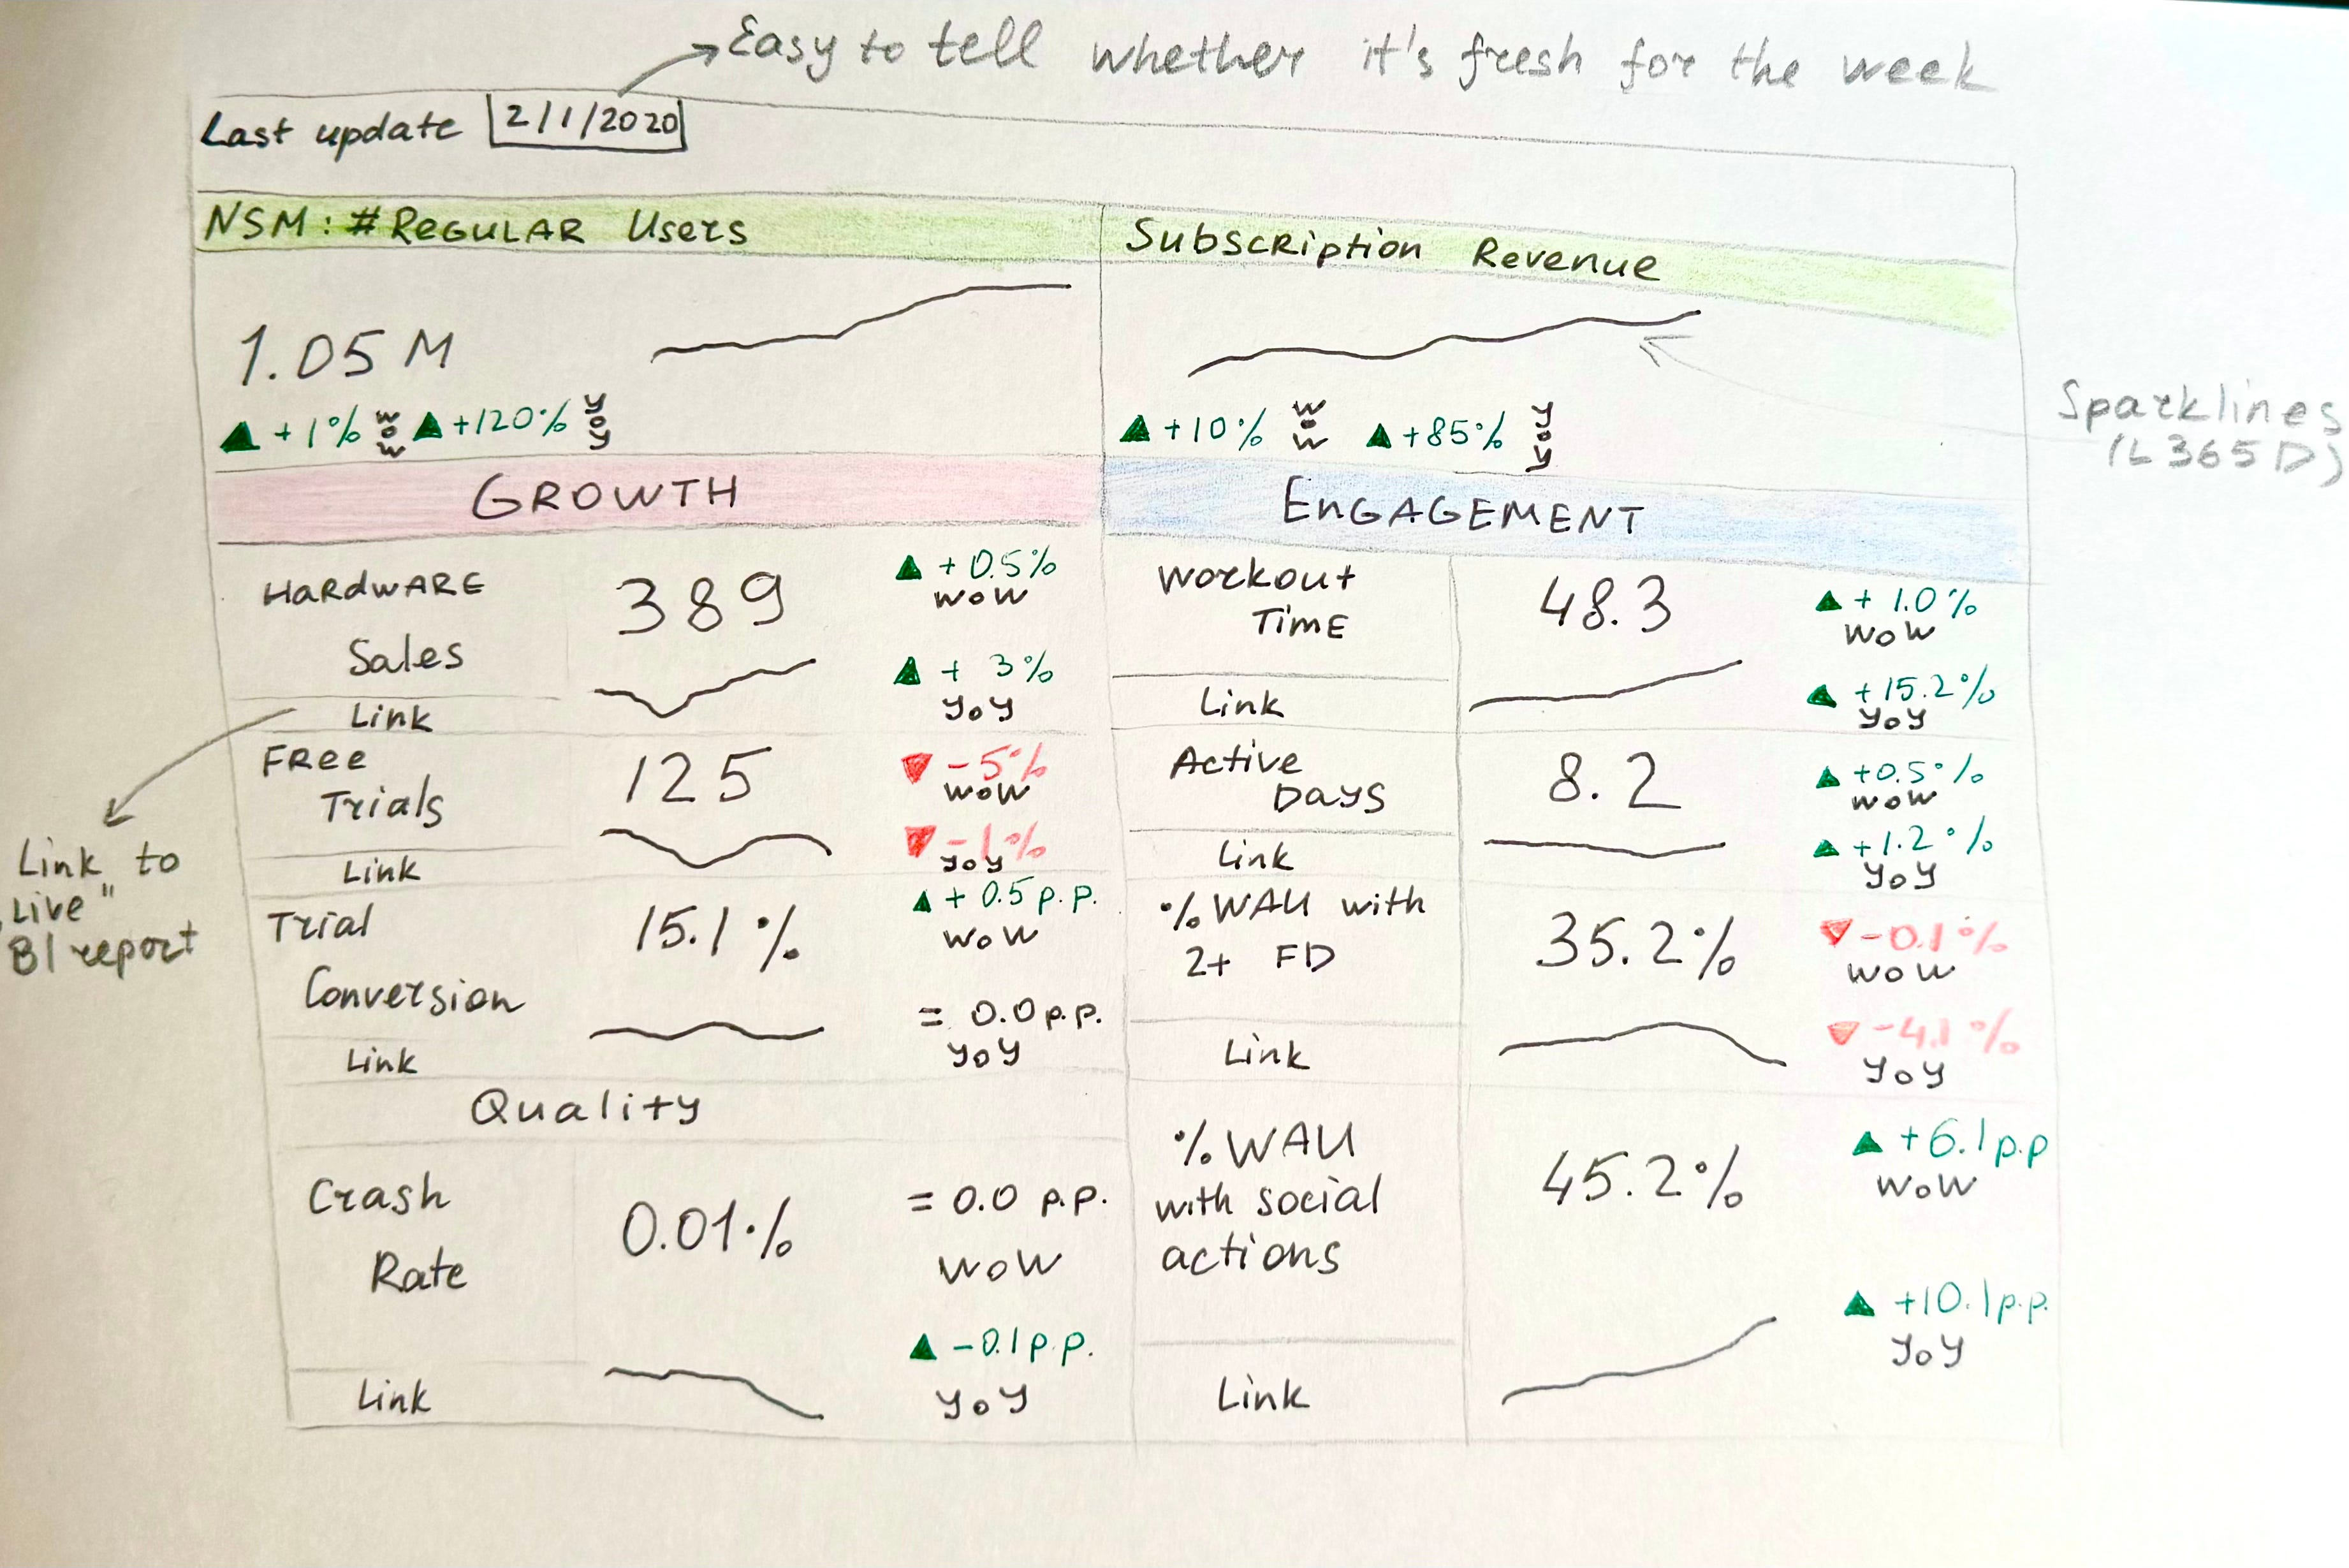 Easy to tell whether it's fresh for the week
Last update 2/1/2020
NSM: # REGULAR Users
1.05 M
▲ +1% WoW ▲ +120% YoY
Subscription Revenue
▲ +10% WoW ▲ +85% YoY
Sparklines
(L365D)
GROWTH
HARDWARE
Sales
Link
389
▲ + 0.5%
WoW
▲ + 3%
YoY
Link to
„Live"
BI report
FRee
Trials
Link
125
▼ -5%
WoW
▼ -1%
YoY
Trial
Conversion
Link
15.1%
▲ + 0.5 p.p.
WoW
= 0.0 p.p.
YoY
Quality
Crash
Rate
Link
0.01%
= 0.0 p.p.
WoW
▲ -0.1 p.p.
YoY
ENGAGEMENT
Workout
TIME
Link
48.3
▲ + 1.0%
WoW
▲ +15.2%
YoY
Active
Days
Link
8.2
▲ +0.5%
WoW
▲ +1.2%
YoY
% WAU with
2+ FD
Link
35.2%
▼ -0.1%
WoW
▼ -4.1%
YoY
% WAU
with social
actions
Link
45.2%
▲ +6.1 p.p
WoW
▲ +10.1 p.p.
YoY